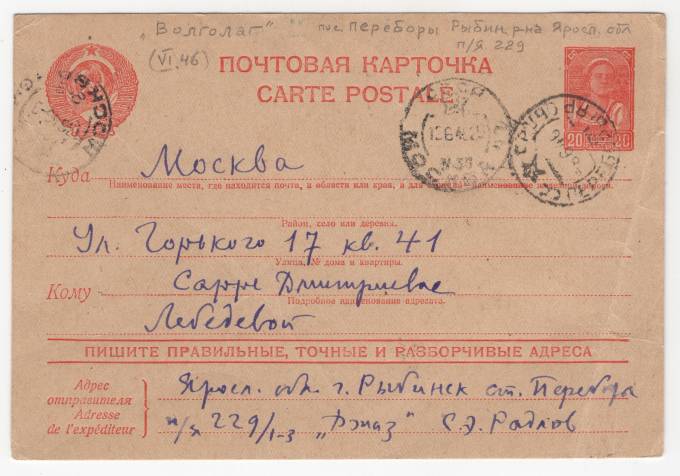 "Волголаг" пос. Переборы Рыбин. р-на Яросл. обл
(VI.46) п/я. 229
ПОЧТОВАЯ КАРТОЧКА
CARTE POSTALE
20 20
Куда Москва
Наименование места, где находится почта, и области или края, а для
Район, село или деревня.
Ул. Горького 17 кв. 41
Улица, № дома и квартиры.
Кому Сарре Дмитриевне
Подробное наименование адресата.
Лебедевой
ПИШИТЕ ПРАВИЛЬНЫЕ, ТОЧНЫЕ И РАЗБОРЧИВЫЕ АДРЕСА
Адрес отправителя
Adresse de l'expéditeur
Яросл. обл. г. Рыбинск ст. Переборы
п/я 229/1-3 „Джаз" С.Э. Радлов